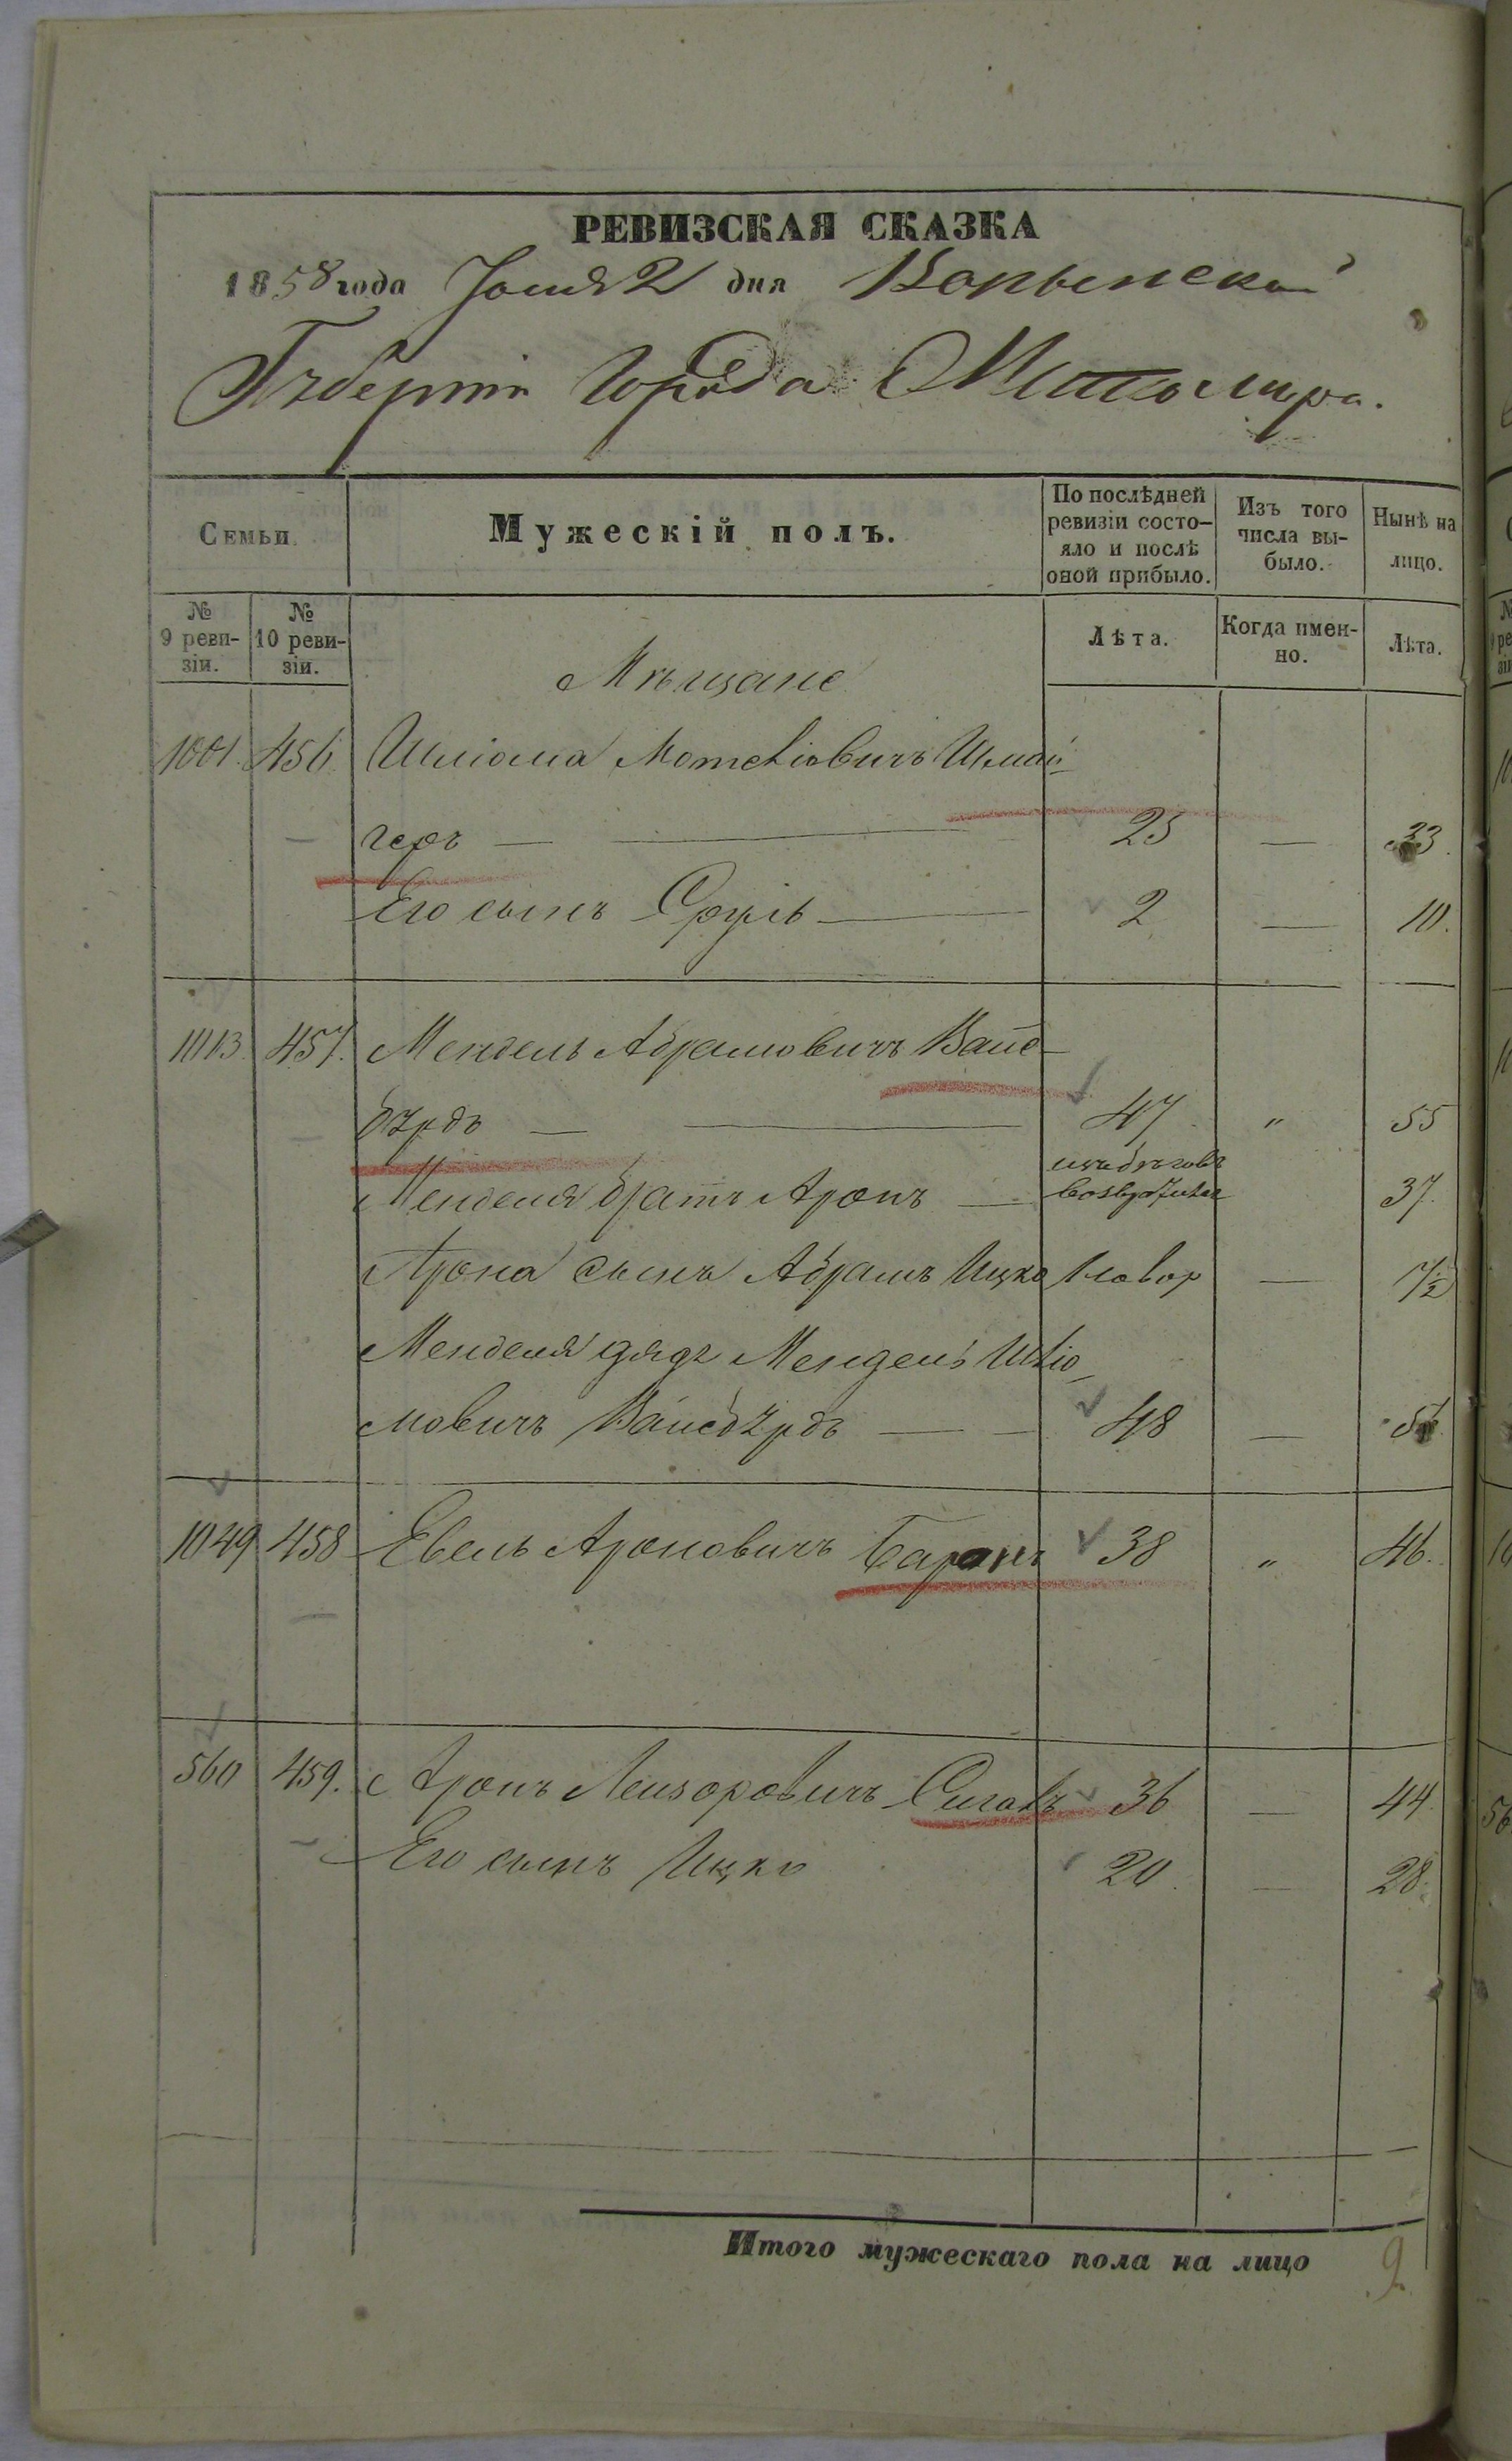 РЕВИЗСКАЯ СКАЗКА
1858 года Іюня 2 дня Волынской
Губерніи Города Житомира.
Семьи.
Мужескій полъ.
По послѣдней ревизіи состо-
яло и послѣ оной прибыло.
Изъ того числа вы-
было.
Нынѣ на лицо.
№ 9 реви-
зіи.
№ 10 реви-
зіи.
Лѣта.
Когда имен-
но.
Лѣта.
Мѣщане
1001. 456. Шліома Мошковичъ Шмой-
геръ — — 25 — 33.
Его сынъ Сруль — 2 — 10.
1013. 457. Мендель Абрамовичъ Вайс-
бурдъ — — 47 " 55
Менделя братъ Аронъ — изъ бѣговъ возвратился 37.
Арона сынъ Абрамъ Ицко новор — 7½
Менделя дядя Мендель Шліо-
мовичъ Вайсбурдъ — — 48 — 56.
1049 458 Евель Ароновичъ Баронъ 38 " 46.
560 459. Аронъ Лейзоровичъ Сигалъ 36 — 44.
Его сынъ Ицко 20. — 28.
Итого мужескаго пола на лицо 9.